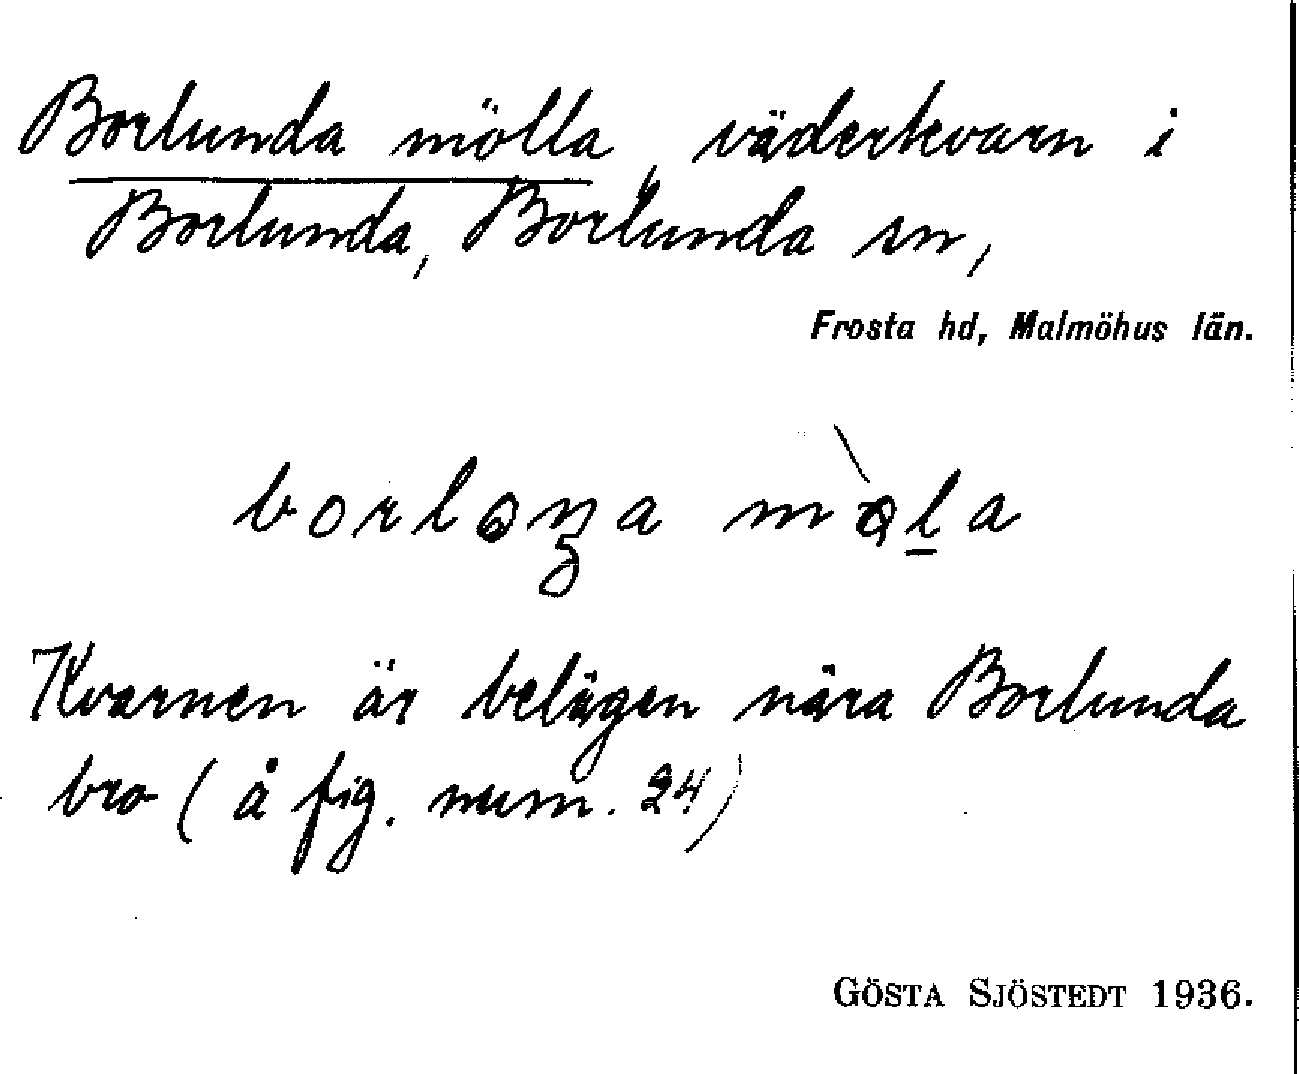 Borlunda mölla, väderkvarn i
Borlunda, Borlunda sn,
Frosta hd, Malmöhus län.
Kvarnen är belägen nära Borlunda
bro (å fig. num. 24)
GÖSTA SJÖSTEDT 1936.